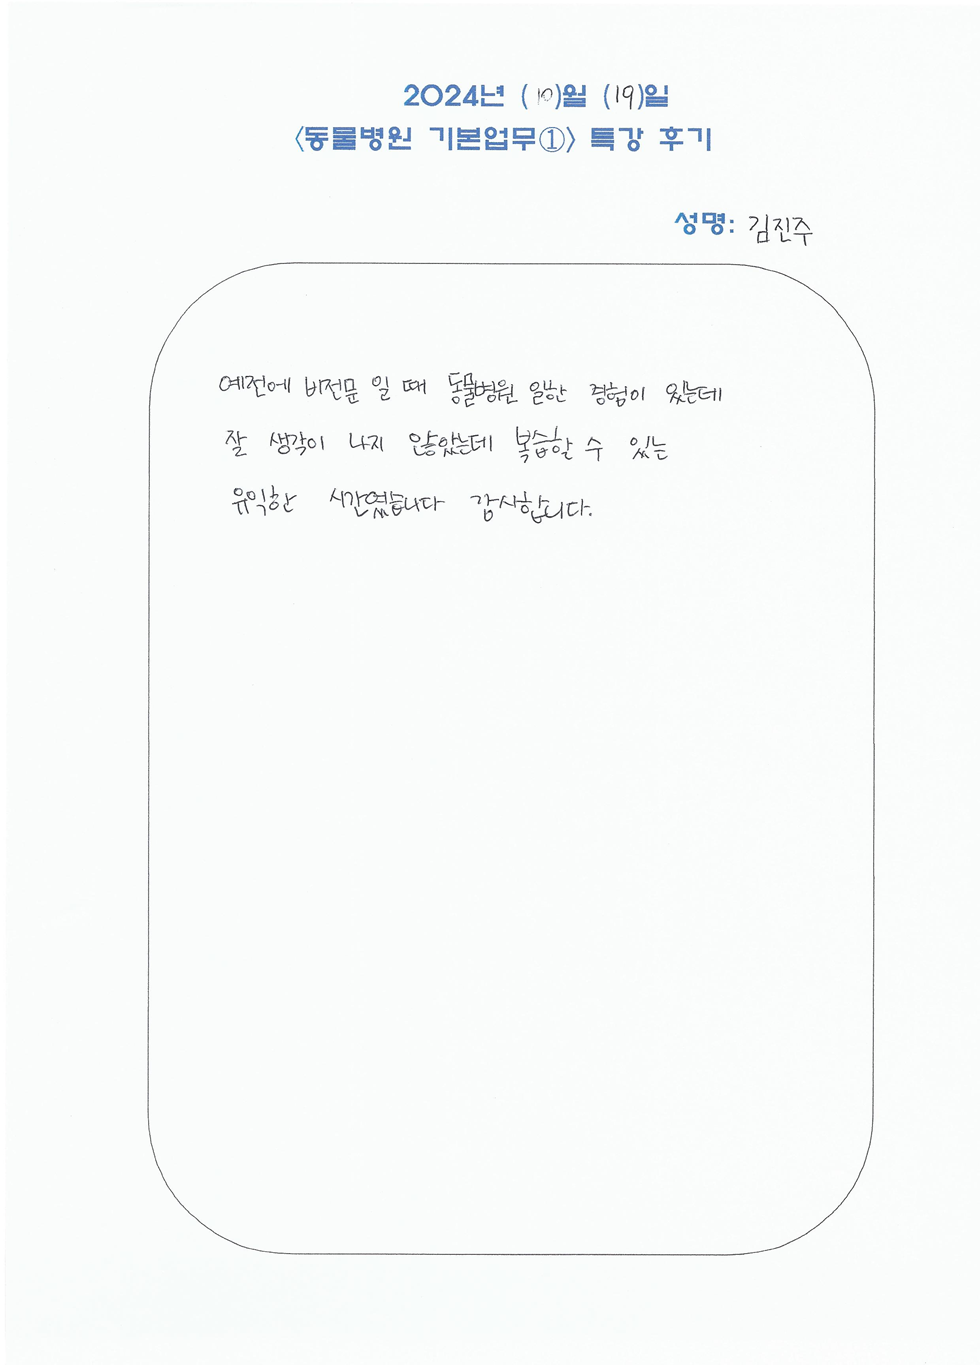 2024년 (10)월 (19)일
<동물병원 기본업무①> 특강 후기
성명: 김진주
예전에 비전문 일 때 동물병원 일한 경험이 있는데
잘 생각이 나지 않았는데 복습할 수 있는
유익한 시간였습니다 감사합니다.